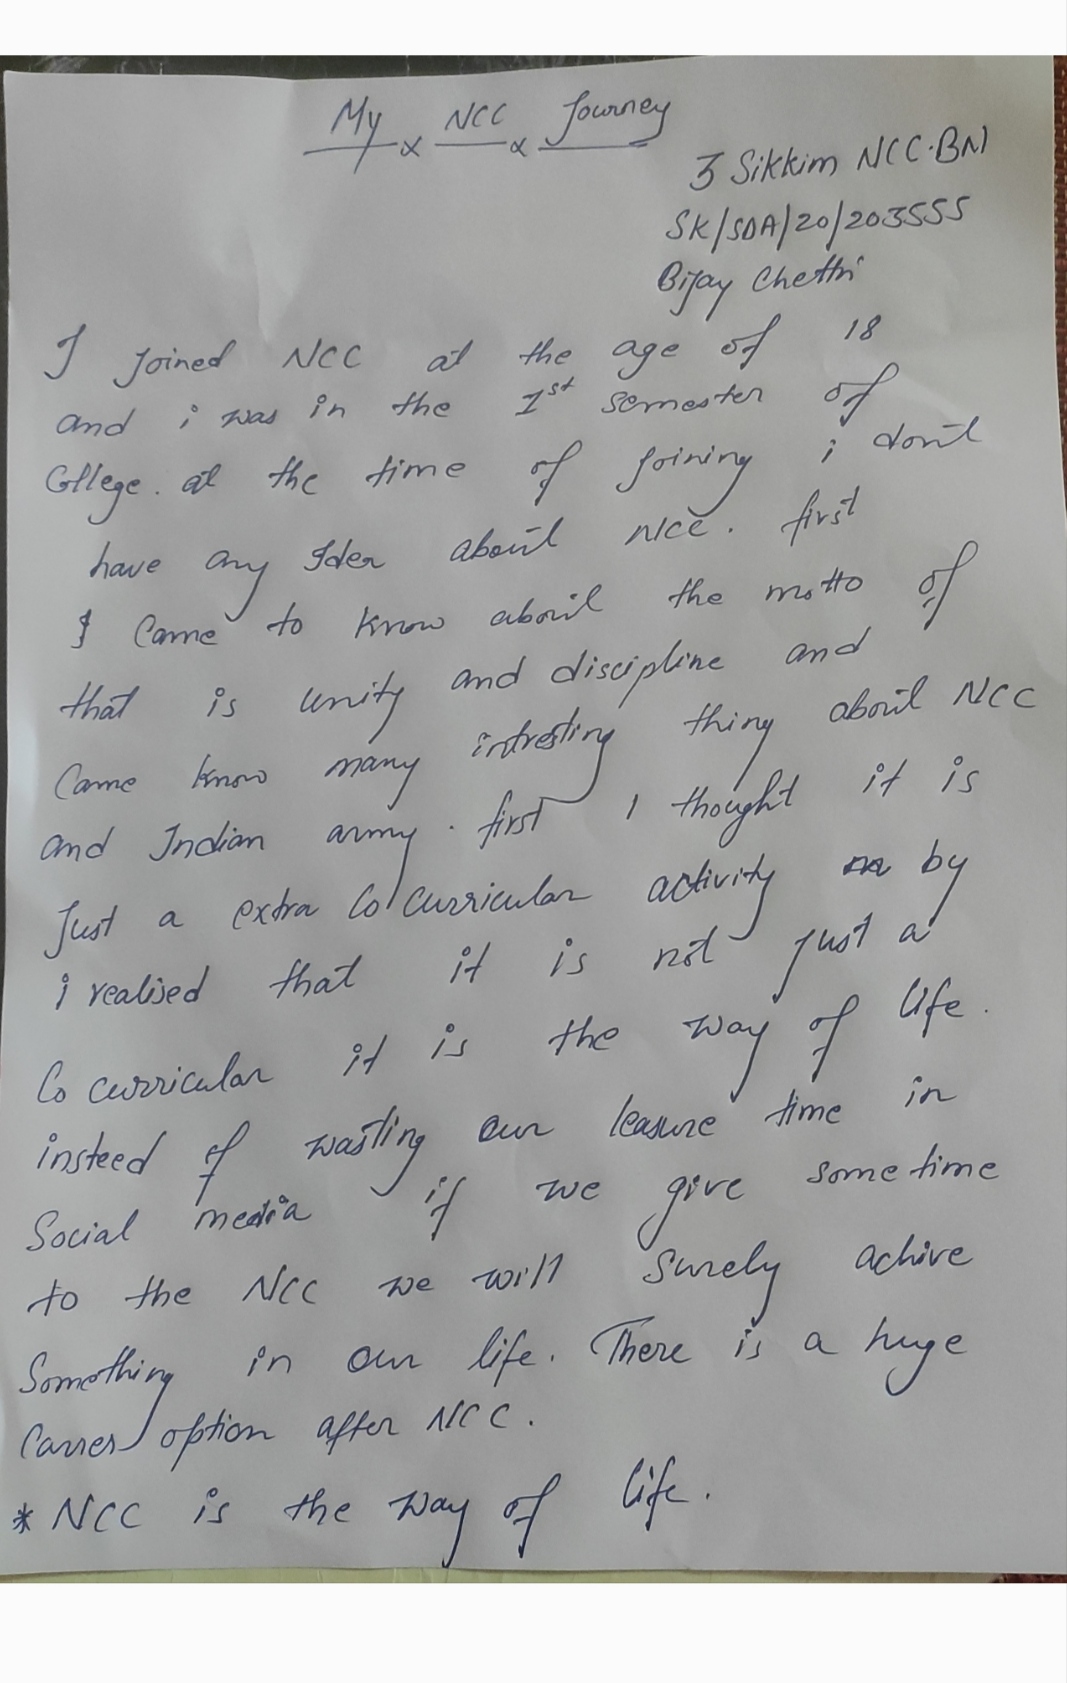 My x NCC x Journey
3 Sikkim NCC.BN
SK/SDA/20/203555
Bijay Chettri
I Joined NCC at the age of 18
and i was in the 1st semester of
College. at the time of joining i don't
have any Idea about NCC. first
I Came to know about the motto of
that is unity and discipline and
Came know many intresting thing about NCC
and Indian army. first I thought it is
Just a extra Co curricular activity by
i realised that it is not just a
Co curricular it is the way of life.
insteed of wasting our leasure time in
Social media if we give some time
to the NCC we will surely achive
Something in our life. There is a huge
Carrer option after NCC.
* NCC is the way of life.